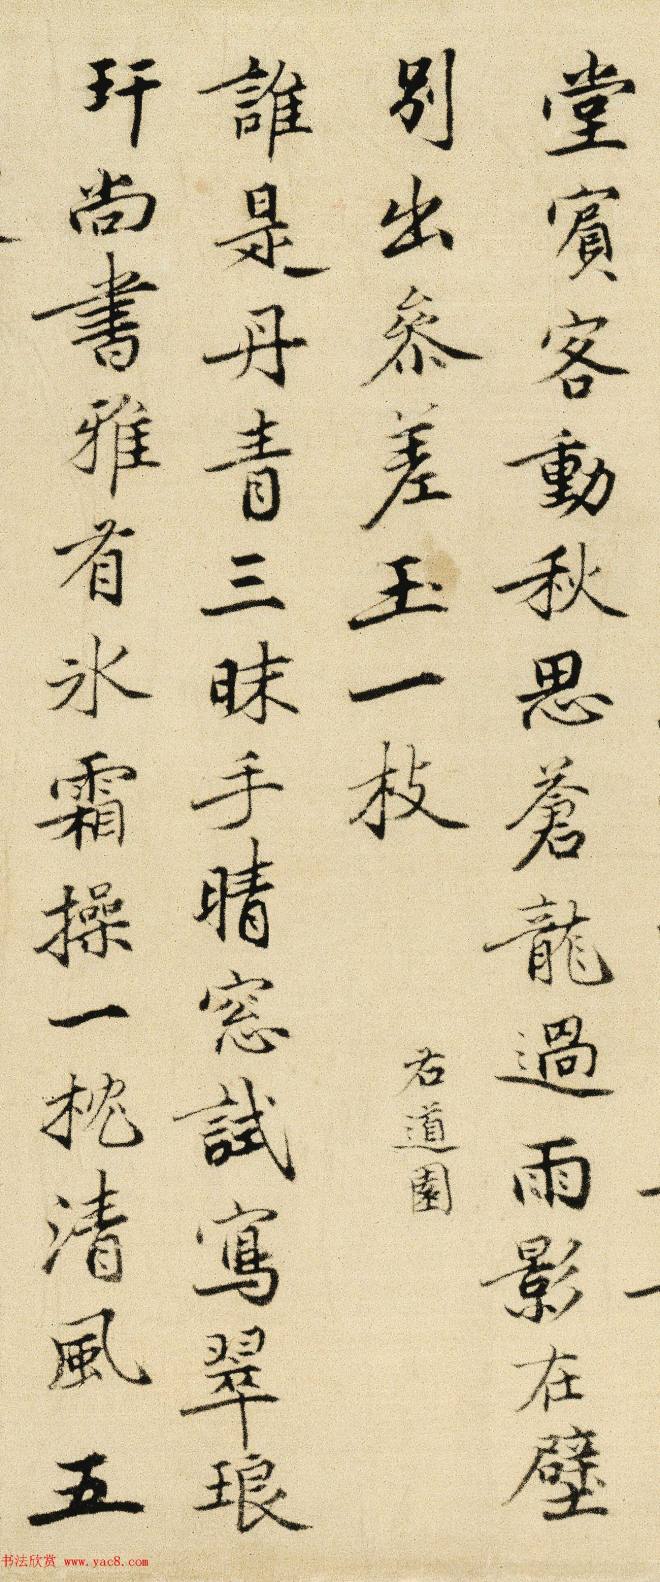 堂賓客動秋思蒼龍過雨影在壁
別出參差玉一枝
右道園
誰是丹青三昧手晴窓試寫翠琅
玕尚書雅有氷霜操一枕清風五
书法欣赏 www.yac8.com